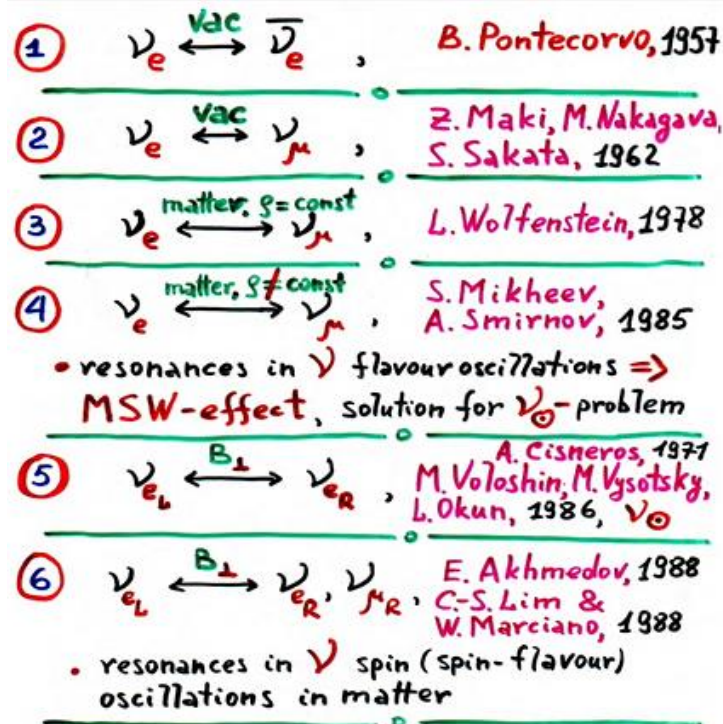 1 νe ⟷ Vac ν̅e , B. Pontecorvo, 1957
2 νe ⟷ Vac νμ , Z. Maki, M. Nakagava,
S. Sakata, 1962
3 νe ⟷ matter, ρ = const νμ , L. Wolfenstein, 1978
4 νe ⟷ matter, ρ ≠ const νμ , S. Mikheev,
A. Smirnov, 1985
• resonances in ν flavour oscillations =>
MSW-effect, solution for ν⊙-problem
5 νeL ⟷ B⊥ νeR , A. Cisneros, 1971
M. Voloshin, M. Vysotsky,
L. Okun, 1986, ν⊙
6 νeL ⟷ B⊥ νeR, νμR , E. Akhmedov, 1988
C.-S. Lim &
W. Marciano, 1988
• resonances in ν spin (spin-flavour)
oscillations in matter